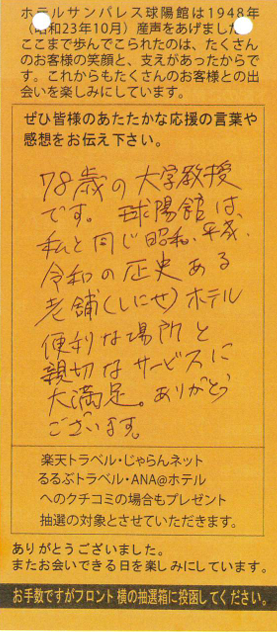 ホテルサンパレス球陽館は1948年
（昭和23年10月）産声をあげました
ここまで歩んでこられたのは、たくさん
のお客様の笑顔と、支えがあったからで
す。これからもたくさんのお客様との出
会いを楽しみにしています。
ぜひ皆様のあたたかな応援の言葉や
感想をお伝え下さい。
78歳の大学教授
です。球陽館は、
私と同じ昭和、平成、
令和の歴史ある
老舗(しにせ)ホテル
便利な場所と
親切なサービスに
大満足。ありがとう
ございます。
楽天トラベル・じゃらんネット
るるぶトラベル・ANA@ホテル
へのクチコミの場合もプレゼント
抽選の対象とさせていただきます。
ありがとうございました。
またお会いできる日を楽しみにしています。
お手数ですがフロント横の抽選箱に投函してください。